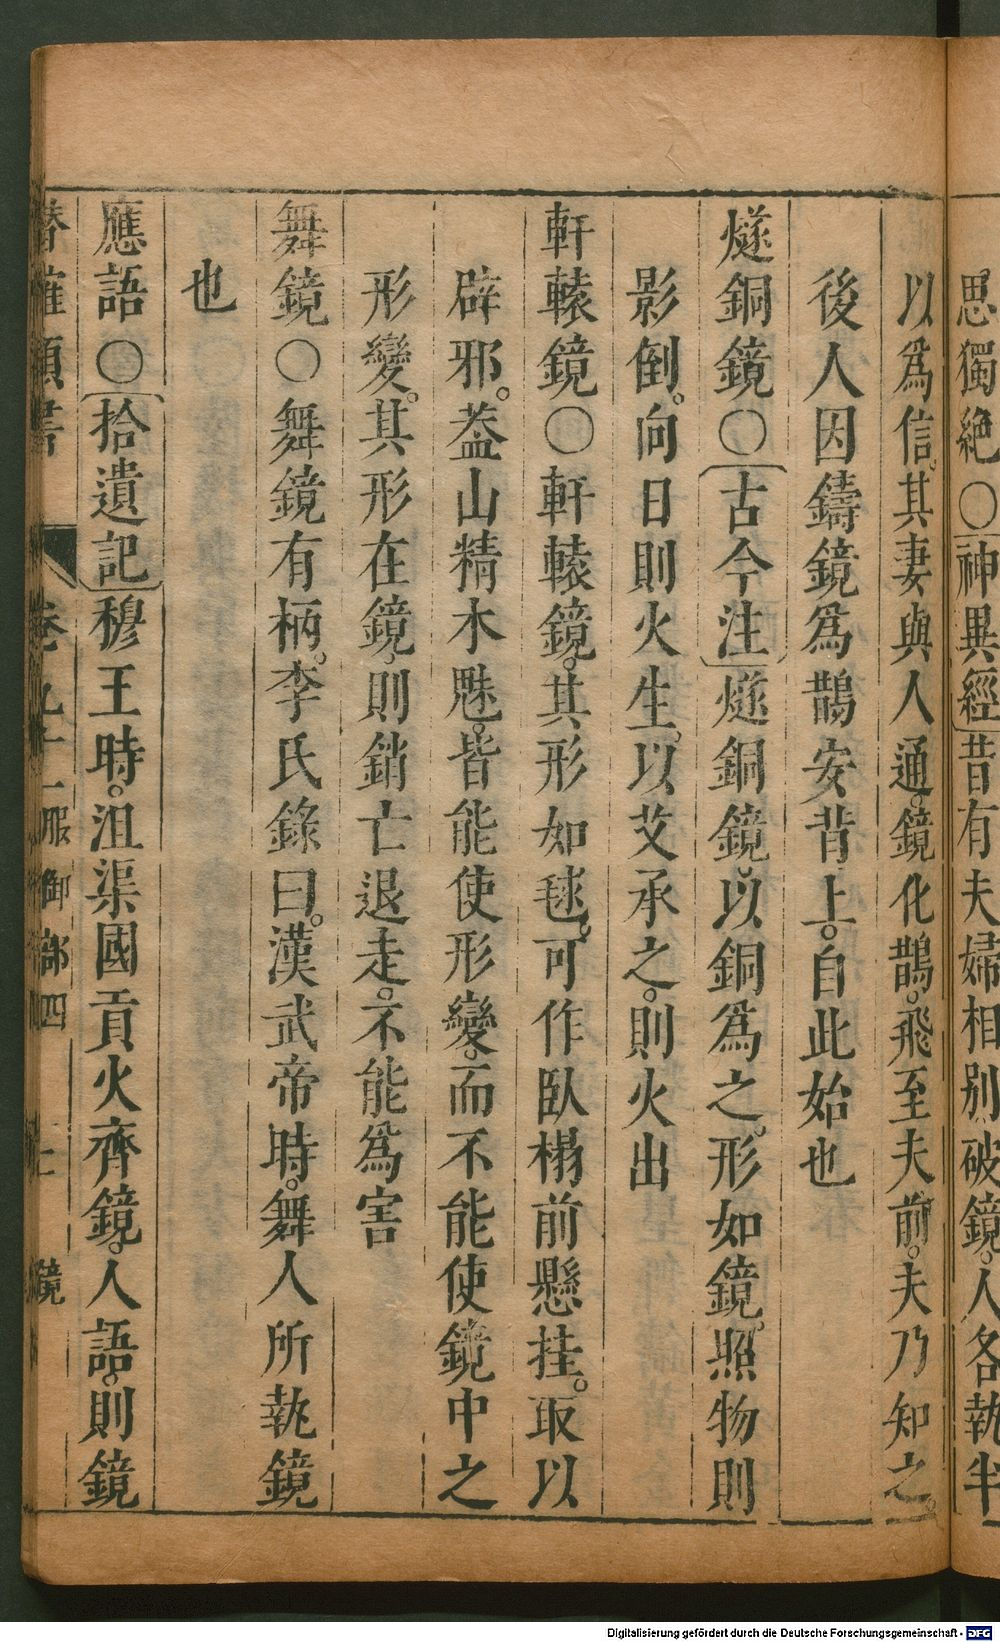 思獨絶〇神異經昔有夫婦相别破鏡。人各執半
以爲信。其妻與人通。鏡化鵲。飛至夫前。夫乃知之。
後人因鑄鏡爲鵲安背上。自此始也
燧銅鏡〇古今注燧銅鏡。以銅爲之。形如鏡。照物則
影倒。向日則火生。以艾承之。則火出
軒轅鏡〇軒轅鏡。其形如毬。可作臥榻前懸挂。取以
辟邪。葢山精木魅。皆能使形變。而不能使鏡中之
形變。其形在鏡。則銷亡退走。不能爲害
舞鏡〇舞鏡有柄。李氏錄曰。漢武帝時。舞人所執鏡
也
應語〇拾遺記穆王時。沮渠國貢火齊鏡。人語。則鏡
類書 卷九十二 服御部四 鏡
Digitalisierung gefördert durch die Deutsche Forschungsgemeinschaft - DFG